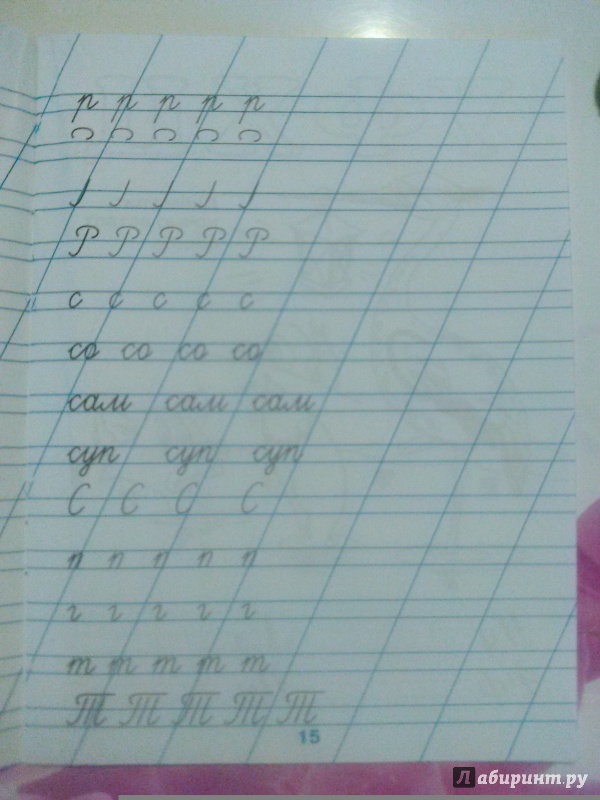 р р р р р
Р Р Р Р Р
с с с с с
со со со со
сам сам сам
суп суп суп
С С С С
п п п п п
г г г г г
т т т т т
Т Т Т Т Т Т
15
Лабиринт.ру